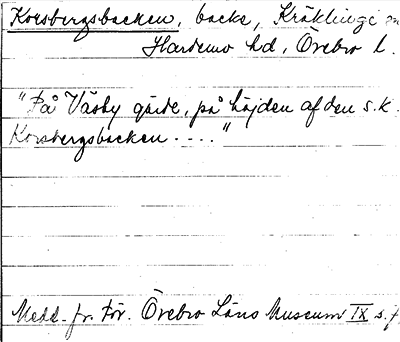 Korsbergsbacken, backe, Kräklinge
Hardemo hd, Örebro l.
"På Väsby gärde, på höjden af den s.k.
Korsbergsbacken...."
Medd. fr. För. Örebro Läns Museum IX s.